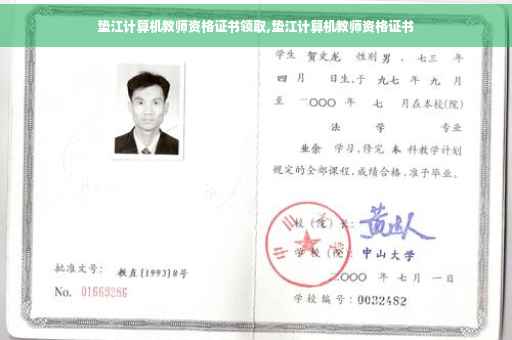 垫江计算机教师资格证书领取,垫江计算机教师资格证书
学生 贺文龙 性别 男 、七三 年
四 月 日生,于 九七 年 九 月
至 二000 年 七 月在本校(院)
法 学 专业
业余 学习,修完 本 科教学计划
规定的全部课程,成绩合格,准予毕业。
校(院)长:
学校(院): 中山大学
二000 年 七 月 一 日
学校编号: 0032482
批准文号: 教直[1993]8号
No. 01663286